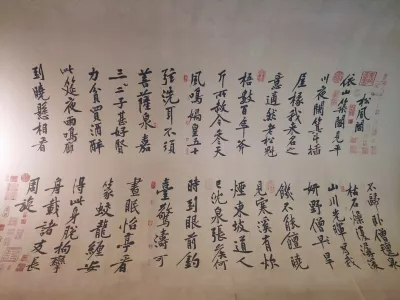 松風閣
依山築閣見平
川夜闌箕斗插
屋椽我來名之
意適然老松魁
梧數百年斧
斤所赦今參天
風鳴媧皇五十
弦洗耳不須
菩薩泉嘉
三二子甚好賢
力貧買酒醉
此筵夜雨鳴廊
到曉懸相看
不歸臥僧氈泉
枯石燥復潺湲
山川光輝為我
妍野僧旱
饑不能饘曉
見寒溪有炊
煙東坡道人
已沈泉張侯何
時到眼前釣
臺驚濤可
晝眠怡亭看
篆蛟龍纏安
得此身脫拘攣
舟載諸友長
周旋